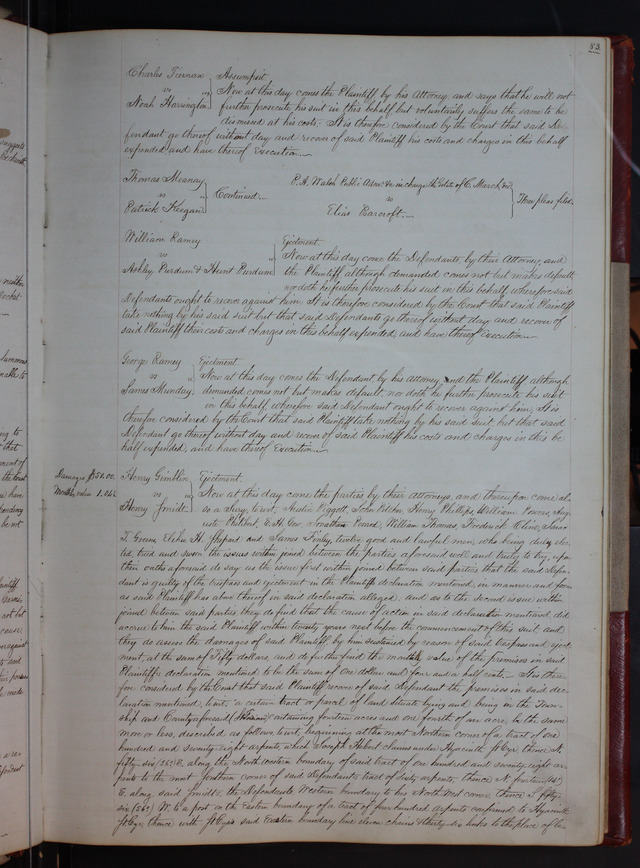 83.
Charles Tiernan } Assumpsit.
vs Now at this day comes the Plaintiff by his Attorney, and says that he will not
Noah Harrington. further prosecute his suit in this behalf but voluntarily suffers the same to be
dismissed at his costs;. It is therefore considered by the Court that said De-
fendant go thereof without day and recover of said Plaintiff his costs and charges in this behalf
expended and have thereof Execution.
Thomas Meanay
vs } Continued.
Patrick Keegan
P. H. Walsh Public Admr. in charge the Estate of C. March
vs } Three pleas filed.
Elias Barcroft.
William Ramey Ejectment.
vs Now at this day come the Defendants by their Attorney, and
Ashley Purdum & Hunt Purdum the Plaintiff although demanded comes not but makes default
nor doth he further prosecute his suit in this behalf wherefore said
Defendants ought to recover against him. It is therefore considered by the Court that said Plaintiff
take nothing by his said suit but that said Defendants go thereof without day and recover of
said Plaintiff their costs and charges in this behalf expended, and have thereof Execution.
George Ramey Ejectment.
vs Now at this day comes the Defendant by his Attorney, and the Plaintiff although
James Munday. demanded comes not but makes default, nor doth he further prosecute his suit
in this behalf, wherefore said Defendant ought to recover against him; It is
therefore considered by the Court that said Plaintiff take nothing by his said suit but that said
Defendant go thereof without day and recover of said Plaintiff his costs and charges in this be-
half expended, and have thereof Execution.
Damages $50.00.
Monthly value 1.04½
Henry Gimblin Ejectment.
vs Now at this day come the parties by their Attorneys, and thereupon come al-
Henry Smidt. so a Jury, to wit, Austin Piggott, John Pitcher, Henry Phillips, William Power, Aug-
uste Philibert, E. H. Gow, Jonathan Pound, William Thomas, Frederick Cline, James
T. Green, Elihu H. Shepard and James Finley, twelve good and lawful men, who being duly elec-
ted, tried and sworn the issues within joined between the parties aforesaid well and truly to try, upon
their oaths aforesaid do say as the issue first within joined between said parties that the said Defen-
dant is guilty of the trespass and ejectment in the Plaintiffs declaration mentioned, in manner and form
as said Plaintiff has above thereof in said declaration alleged, and as to the second issue within
joined between said parties they do find that the cause of action in said declaration mentioned, did
accrue to him the said Plaintiff within twenty years next before the commencement of this suit, and
they do assess the damages of said Plaintiff by him sustained by reason of said trespass and eject-
ment, at the sum of Fifty dollars, and do further find the monthly value of the premises in said
Plaintiffs declaration mentioned to be the sum of one dollar and four and a half cents. It is there-
fore considered by the Court that said Plaintiff recover of said Defendant the premises in said dec-
laration mentioned, to wit; a certain tract or parcel of land situate lying and being in the Town-
ship and County aforesaid containing fourteen acres and one fourth of an acre, be the same
more or less, described as follows, to wit, beginning at the most Northern corner of a tract of one
hundred and seventy eight arpents, which Joseph Hebert claims under Hyacinth St Cyr, thence N.
fifty six (56°) E. along the North western boundary of said tract of one hundred and seventy eight ar-
pents to the most Northern corner of said Defendants tract of sixty arpents, thence N. fourteen (14°)
E. along said Smidts, the Defendants Western boundary to his North West corner, thence S. fifty
six (56°) W. to a post on the Eastern boundary of a tract of four hundred arpents confirmed to Hyacinth
St Cyr, thence with St Cyrs said Eastern boundary line eleven chains & thirty six links to the place of be-